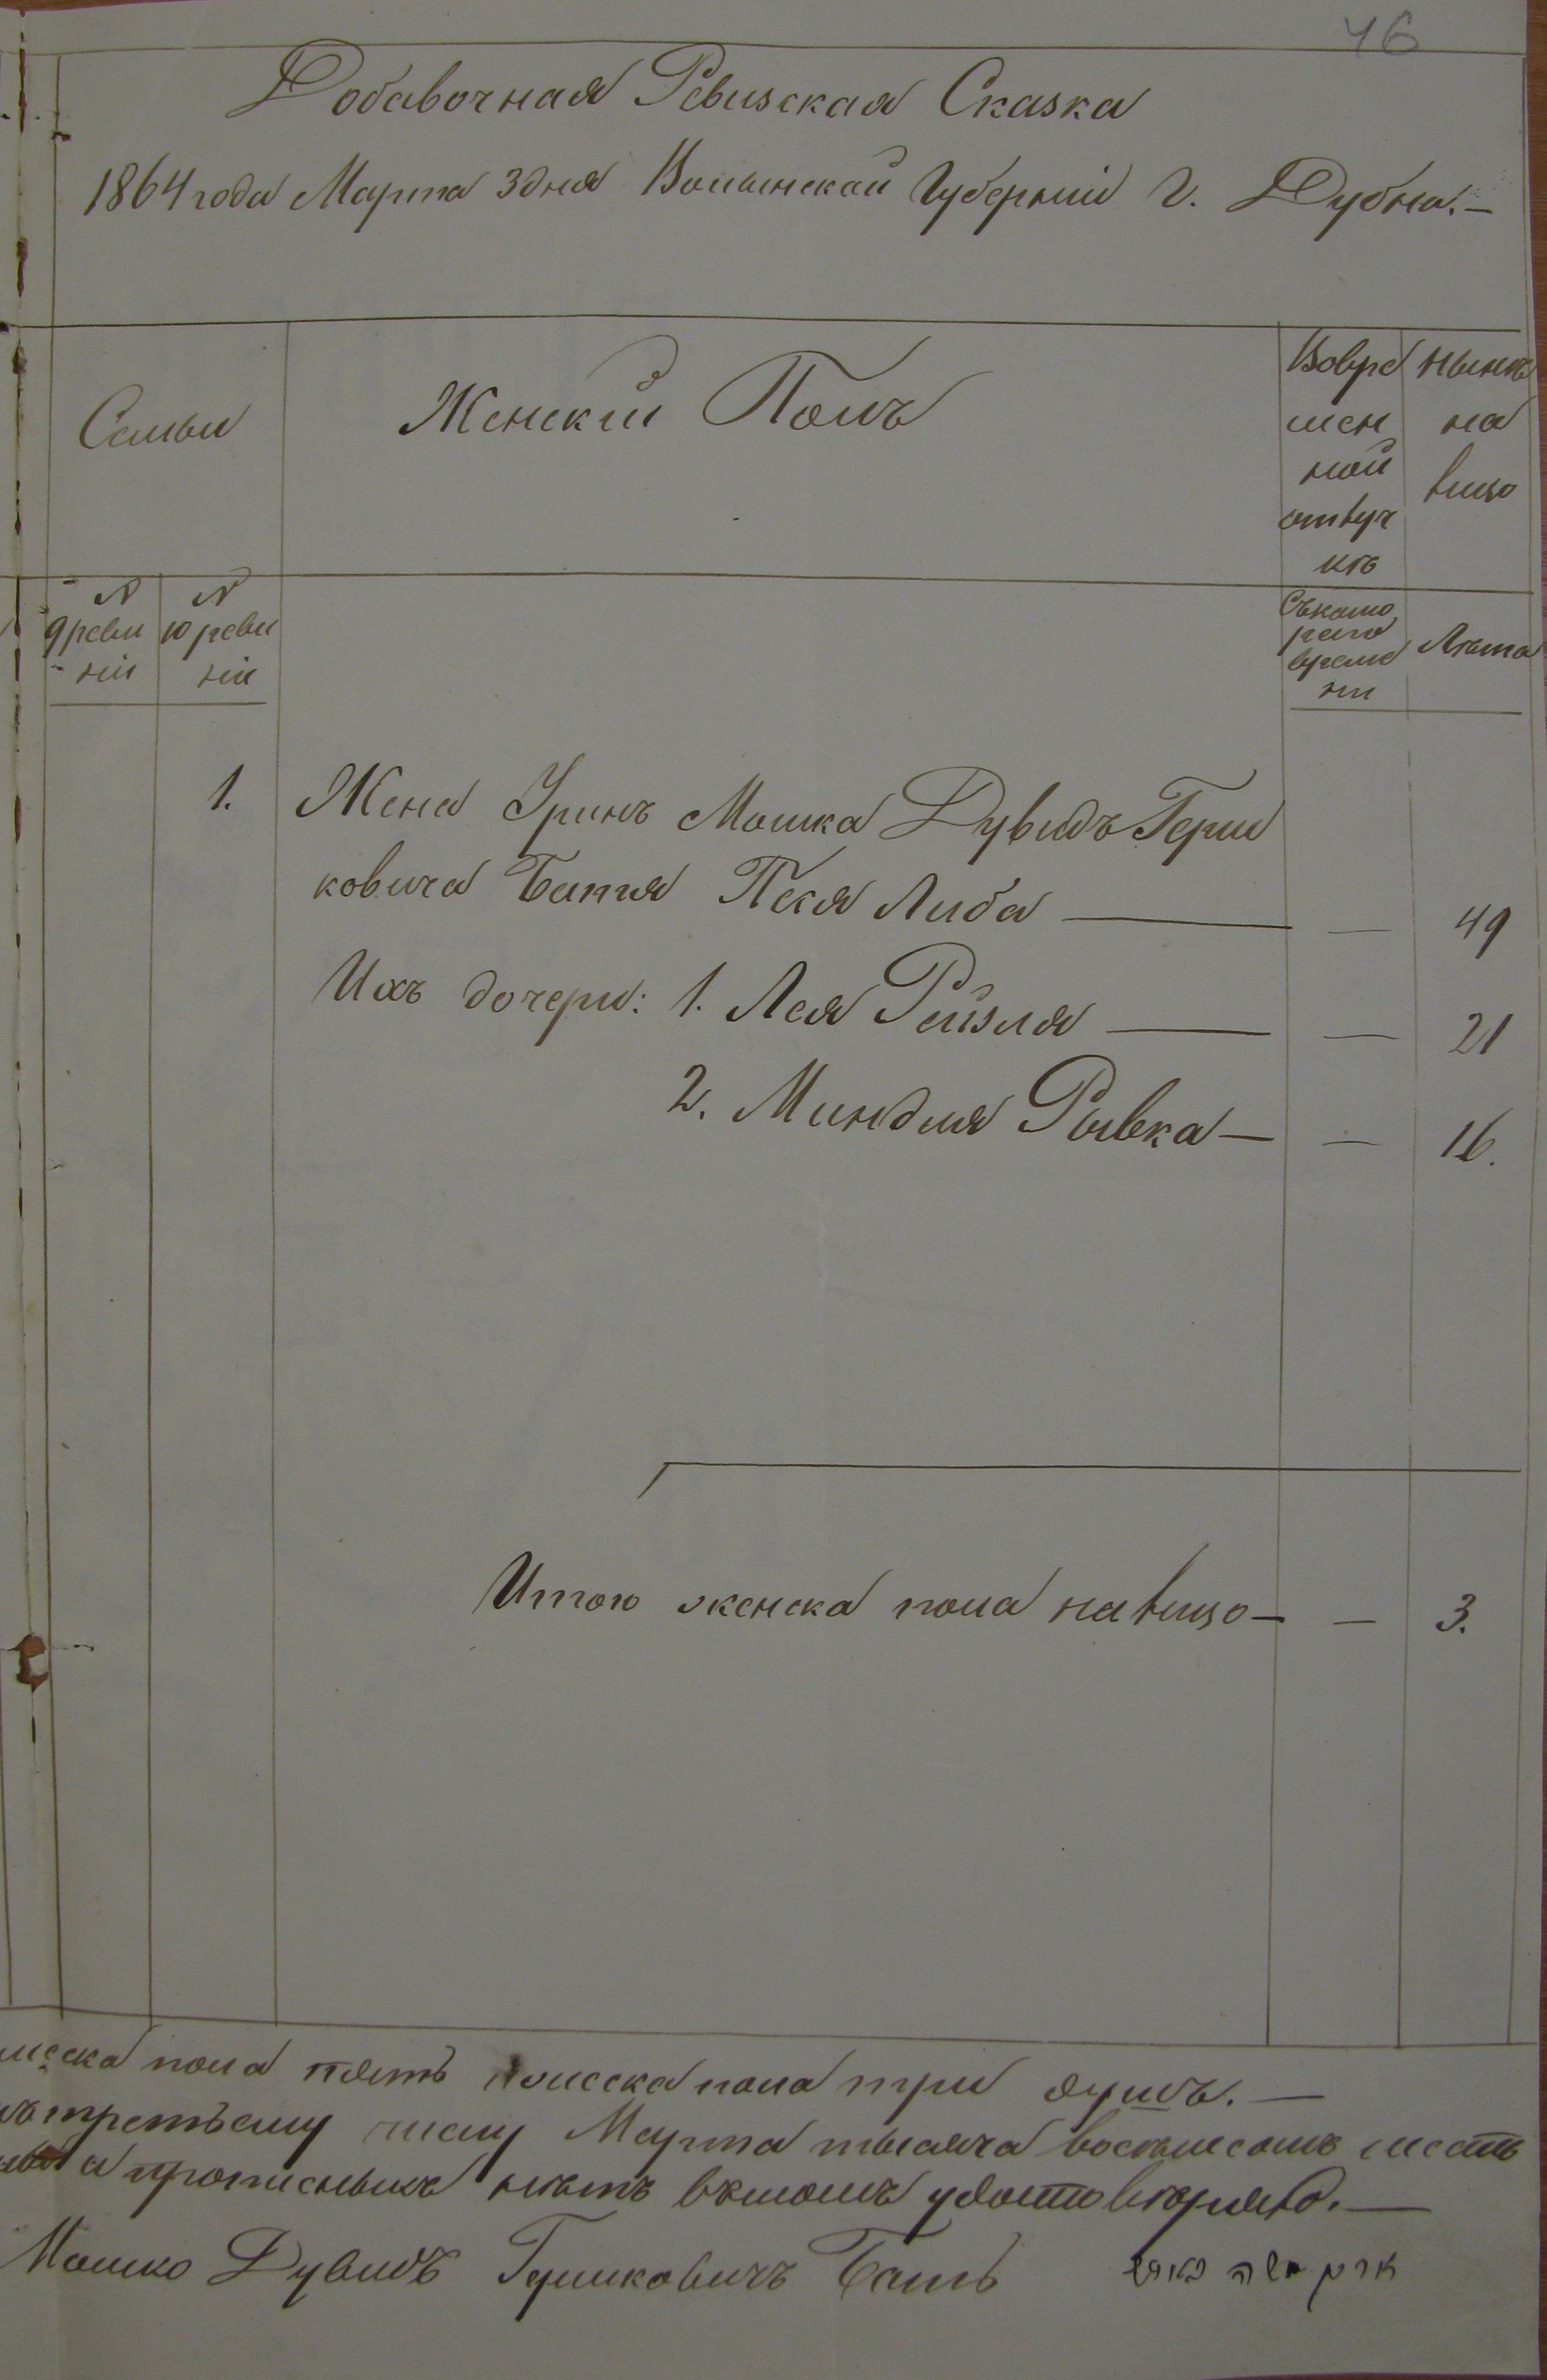 46
Добавочная Ревизская Сказка
1864 года Марта 3 дня Волынской Губерніи г. Дубна.—
Семьи
Женскій Полъ
Вовре
мен
ной
отлуч
кѣ
Нынѣ
на
лицо
№
9 реви
зіи
№
10 реви
зіи
Съкото
раго
време
ни
Лѣта
1. Жена Уринъ Мошка Дувидъ Герш
ковича Песя Либа — — 49
Ихъ дочери: 1. Лея Рейзля — — 21
2. Миндля Рывка — — 16.
Итого женска пола налицо — — 3.
пола пять женска пола три душъ.—
третьему числу Марта тысяча восемьсотъ шесть
а прописныхъ нѣтъ вътомъ удостовѣряю.—
Мошко Дувидъ Гершковичъ